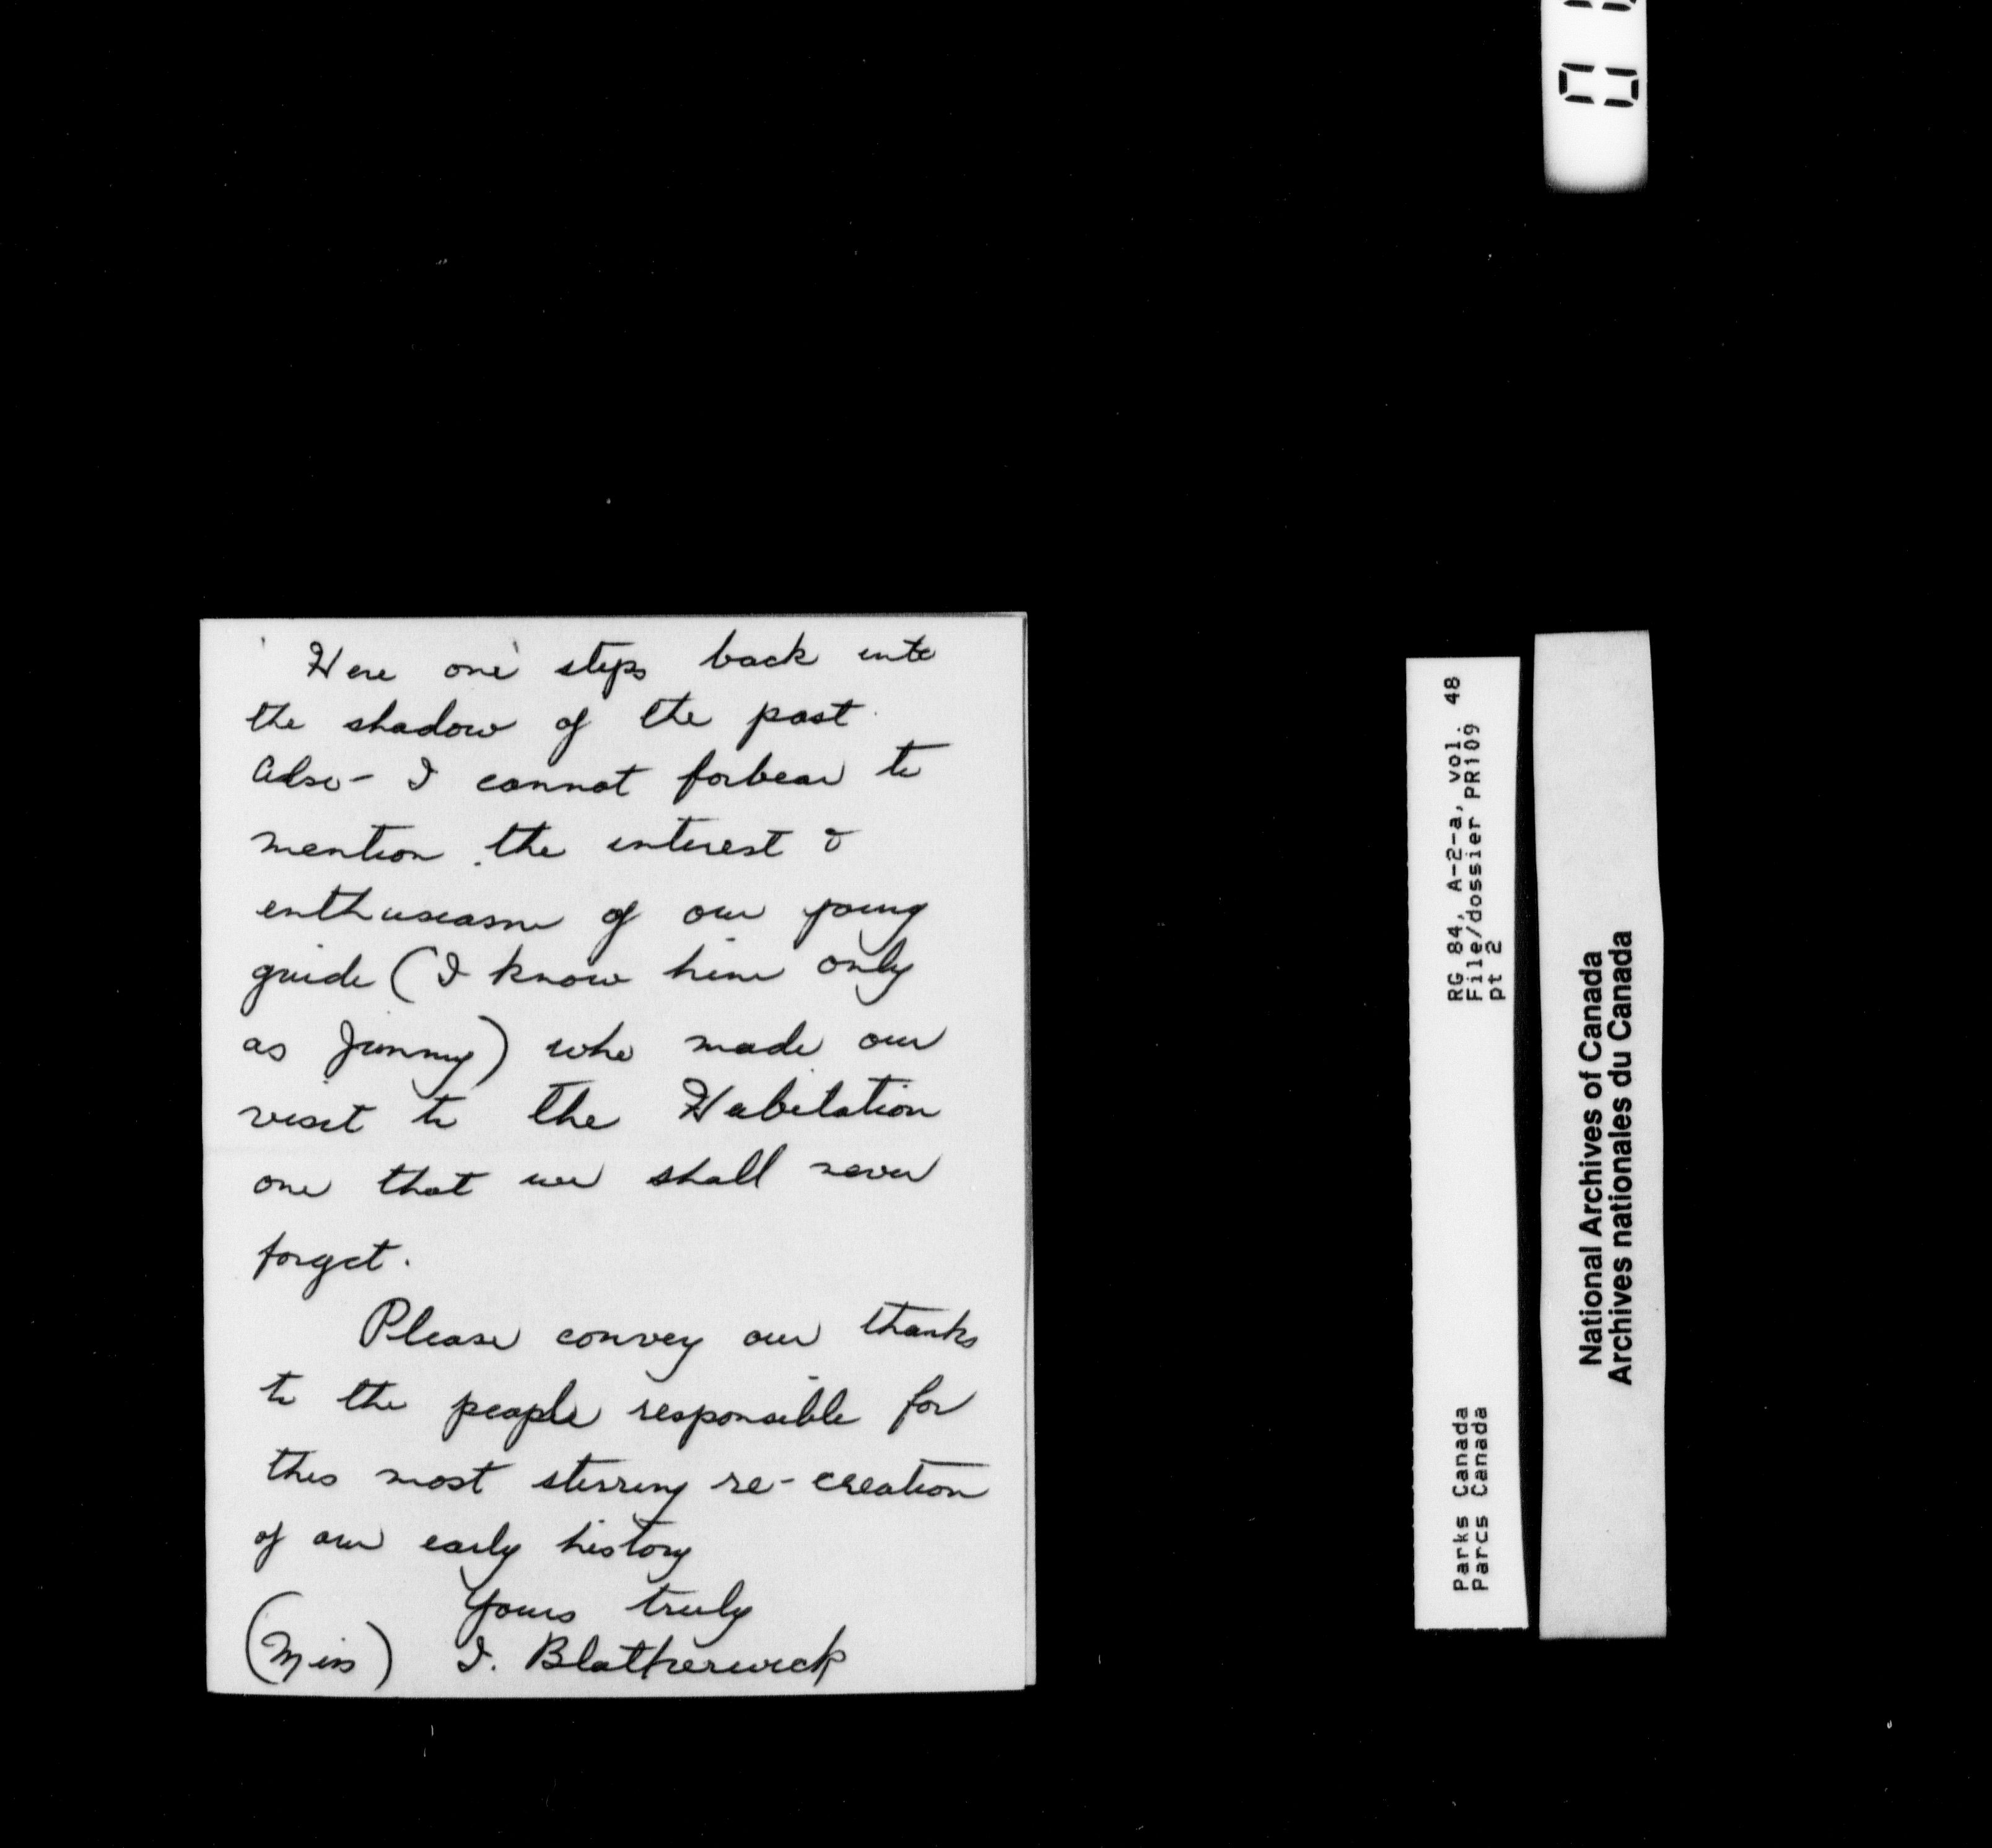 Here one steps back into
the shadow of the past
Also - I cannot forbear to
mention the interest &
enthusiasm of our young
guide (I know him only
as Jimmy) who made our
visit to the Habitation
one that we shall never
forget.
Please convey our thanks
to the people responsible for
this most stirring re-creation
of our early history
Yours truly
(Miss) I. Blatherwick
RG 84, A-2-a, vol. 48
File/dossier PR109
pt 2
Parks Canada
Parcs Canada
National Archives of Canada
Archives nationales du Canada